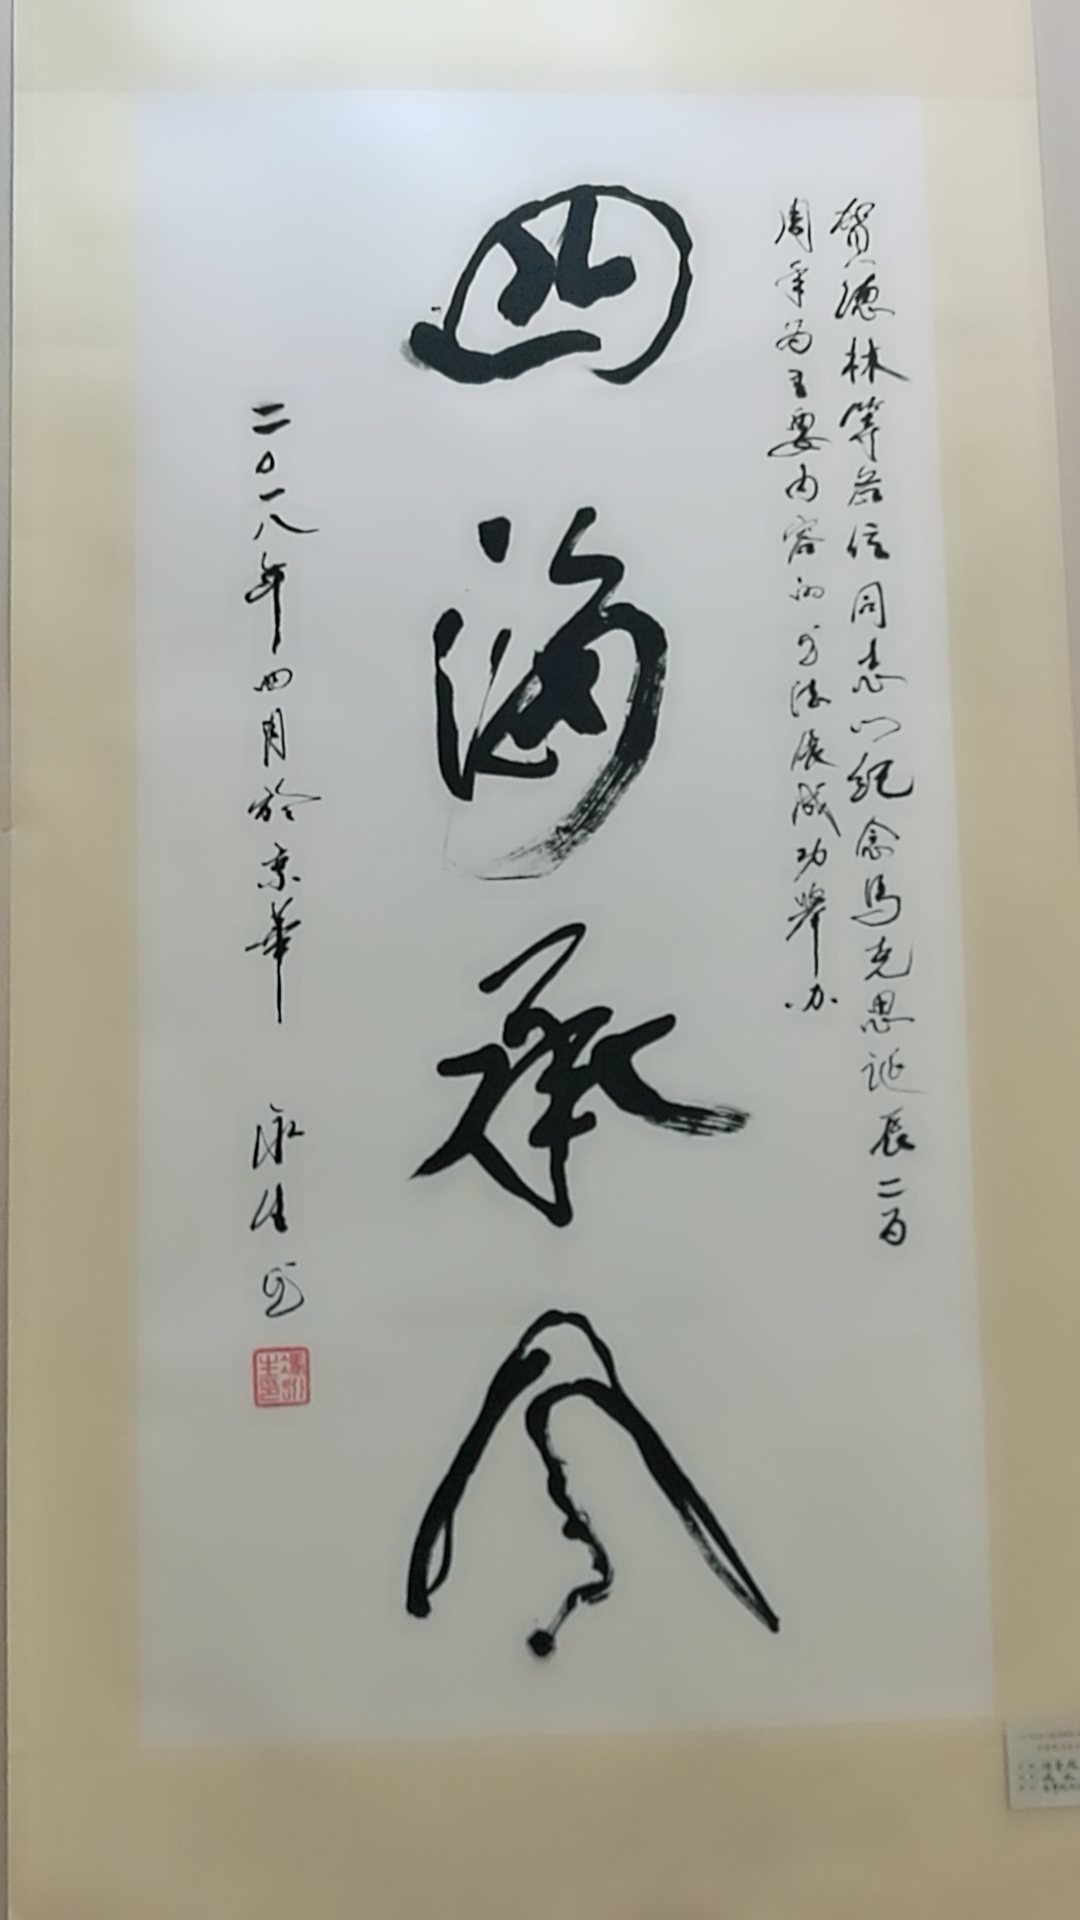 贺德林等众位同志以纪念马克思诞辰二百
周年为主要内容的书法展成功举办
四海承风
二〇一八年四月於京華
永生书